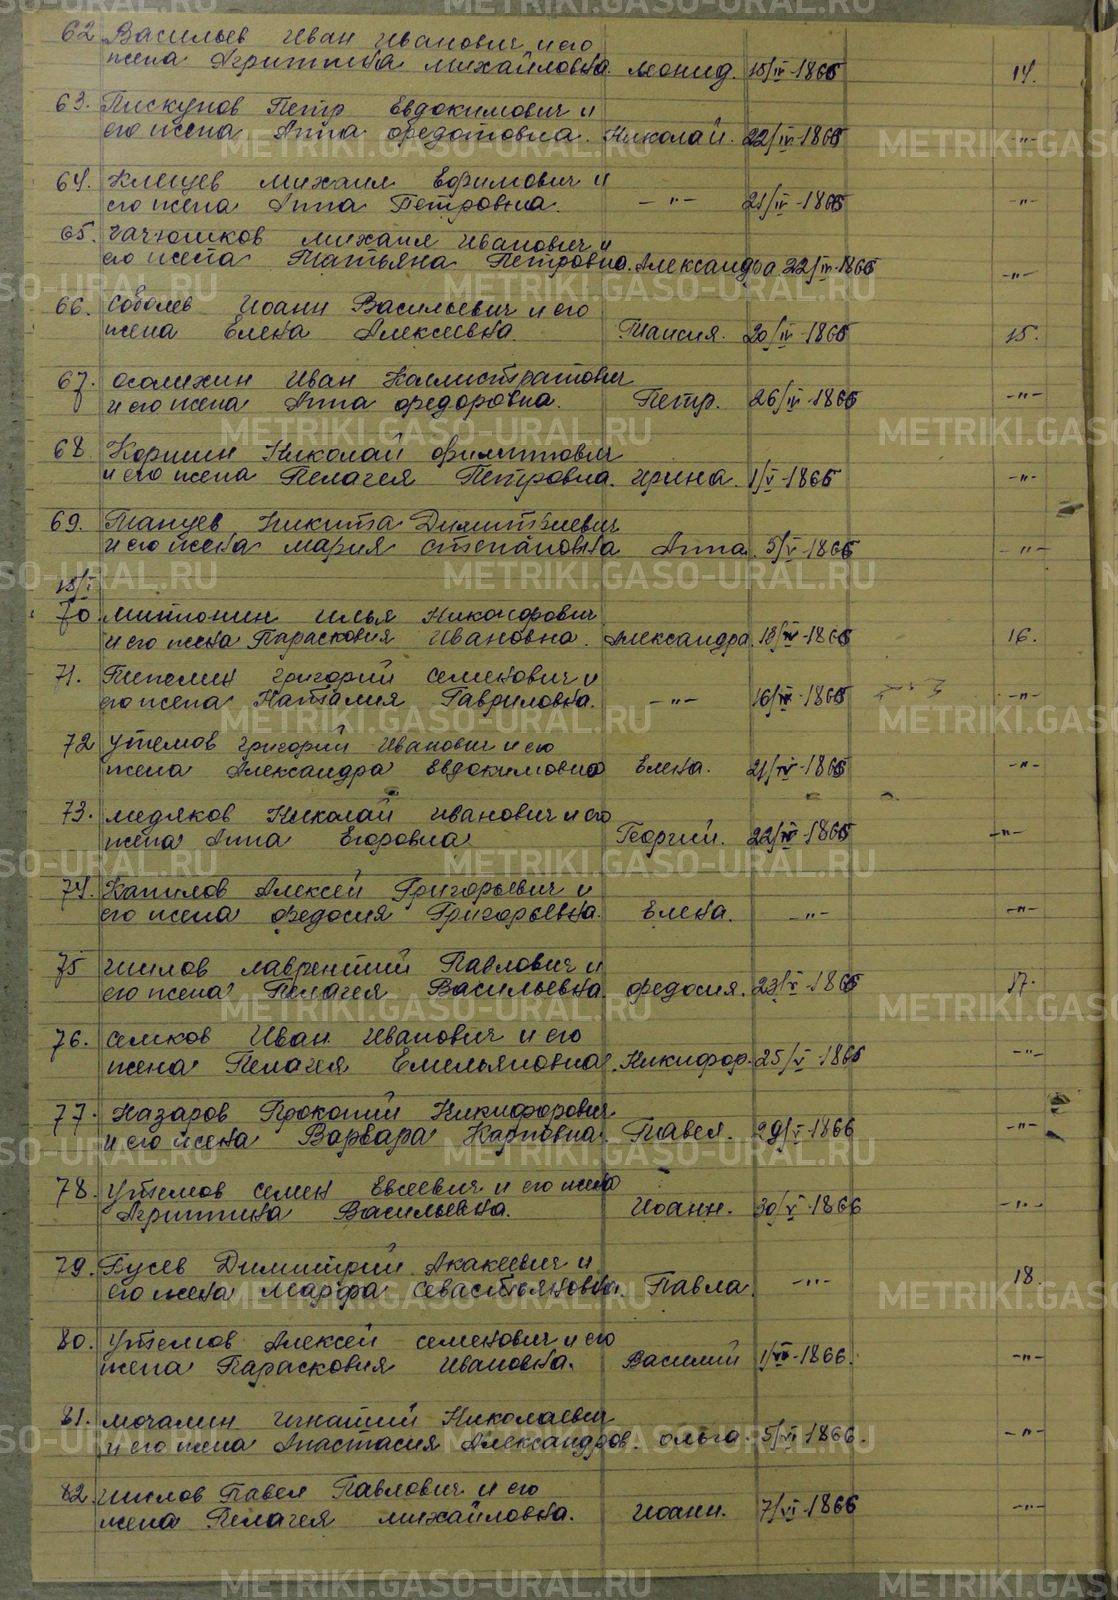 62 Васильев Иван Иванович и его
жена Агриппина Михайловна. Леонид. 15/IV-1866 14.
63. Пискунов Петр Евдокимович и
его жена Анна Федотовна. Николай. 22/IV-1866 -"-
64. Клещев Михаил Ефимович и
его жена Анна Петровна. -"- 21/IV-1866 -"-
65. Михаил Иванович и
его жена Татьяна Петровна. Александра 22/IV-1866 -"-
66. Соболев Иоанн Васильевич и его
жена Елена Алексеевна. Таисия. 20/IV-1866 15.
67. Иван Каллистратович
и его жена Анна Федоровна. Петр. 26/IV-1866 -"-
68. Коршин Николай Филиппович
и его жена Пелагея Петровна. Ирина. 1/V-1866 -"-
69. Танцев Никита Димитриевич
и его жена Мария Степановна Анна. 5/V-1866 -"-
70 Митонин Илья Никанорович
и его жена Парасковия Ивановна. Александра. 16.
71. Пепелин Григорий Семенович и
его жена Наталия Гавриловна. -"- -"-
72 Утемов Григорий Иванович и его
жена Александра Евдокимовна Елена. -"-
73. Медяков Николай Иванович и его
жена Анна Егоровна Георгий. -"-
74. Капилов Алексей Григорьевич и
его жена Федосия Григорьевна. Елена. -"- -"-
75 Шилов Лаврентий Павлович и
его жена Пелагея Васильевна. Федосия. 23/V-1866 17.
76. Семков Иван Иванович и его
жена Пелагея Емельяновна. Никифор. 25/V-1866 -"-
77. Назаров Прокопий Никифорович
и его жена Варвара Карповна. Павел. 29/V-1866 -"-
78. Утемов Семен Евсеевич и его жена
Агриппина Васильевна. Иоанн. 30/V-1866 -"-
79. Гусев Димитрий Акакиевич и
его жена Марфа Севастьяновна. Павла. -"- 18.
80. Утемов Алексей Семенович и его
жена Парасковия Ивановна. Василий 1/VI-1866. -"-
81. Мочалин Игнатий Николаевич
и его жена Анастасия Александров. Ольга. 5/VI-1866. -"-
82. Шилов Павел Павлович и его
жена Пелагея Михайловна. Иоанн. 7/VI-1866 -"-
METRIKI.GASO-URAL.RU